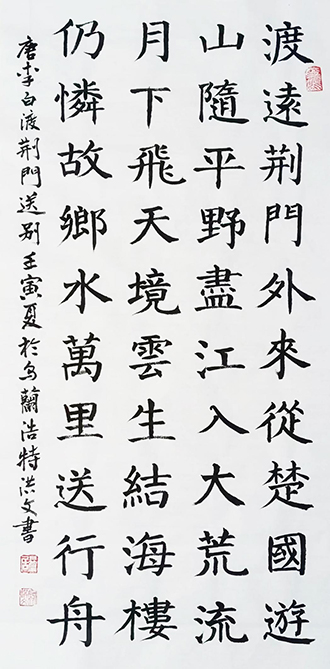 渡遠荆門外來從楚國遊
山隨平野盡江入大荒流
月下飛天境雲生結海樓
仍憐故鄉水萬里送行舟
唐李白渡荆門送别壬寅夏於乌蘭浩特洪文書